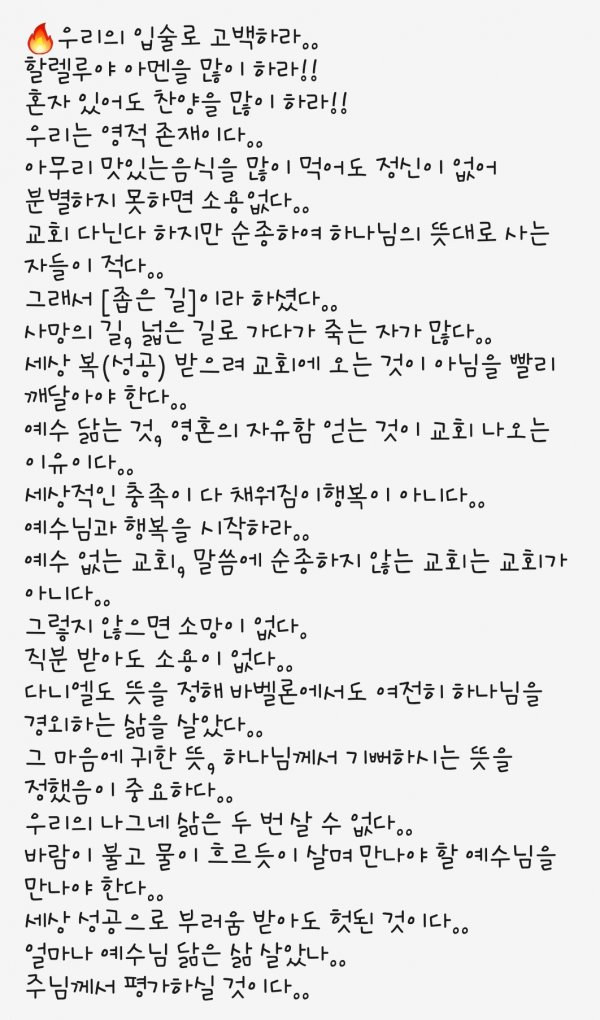 🔥우리의 입술로 고백하라。。
할렐루야 아멘을 많이 하라!!
혼자 있어도 찬양을 많이 하라!!
우리는 영적 존재이다。。
아무리 맛있는음식을 많이 먹어도 정신이 없어
분별하지 못하면 소용없다。。
교회 다닌다 하지만 순종하여 하나님의 뜻대로 사는
자들이 적다。。
그래서 [좁은 길]이라 하셨다。。
사망의 길, 넓은 길로 가다가 죽는 자가 많다。。
세상 복(성공) 받으려 교회에 오는 것이 아님을 빨리
깨달아야 한다。。
예수 닮는 것, 영혼의 자유함 얻는 것이 교회 나오는
이유이다。。
세상적인 충족이 다 채워짐이행복이 아니다。。
예수님과 행복을 시작하라。。
예수 없는 교회, 말씀에 순종하지 않는 교회는 교회가
아니다。。
그렇지 않으면 소망이 없다。
직분 받아도 소용이 없다。。
다니엘도 뜻을 정해 바벨론에서도 여전히 하나님을
경외하는 삶을 살았다。。
그 마음에 귀한 뜻, 하나님께서 기뻐하시는 뜻을
정했음이 중요하다。。
우리의 나그네 삶은 두 번 살 수 없다。。
바람이 불고 물이 흐르듯이 살며 만나야 할 예수님을
만나야 한다。。
세상 성공으로 부러움 받아도 헛된 것이다。。
얼마나 예수님 닮은 삶 살았나。。
주님께서 평가하실 것이다。。